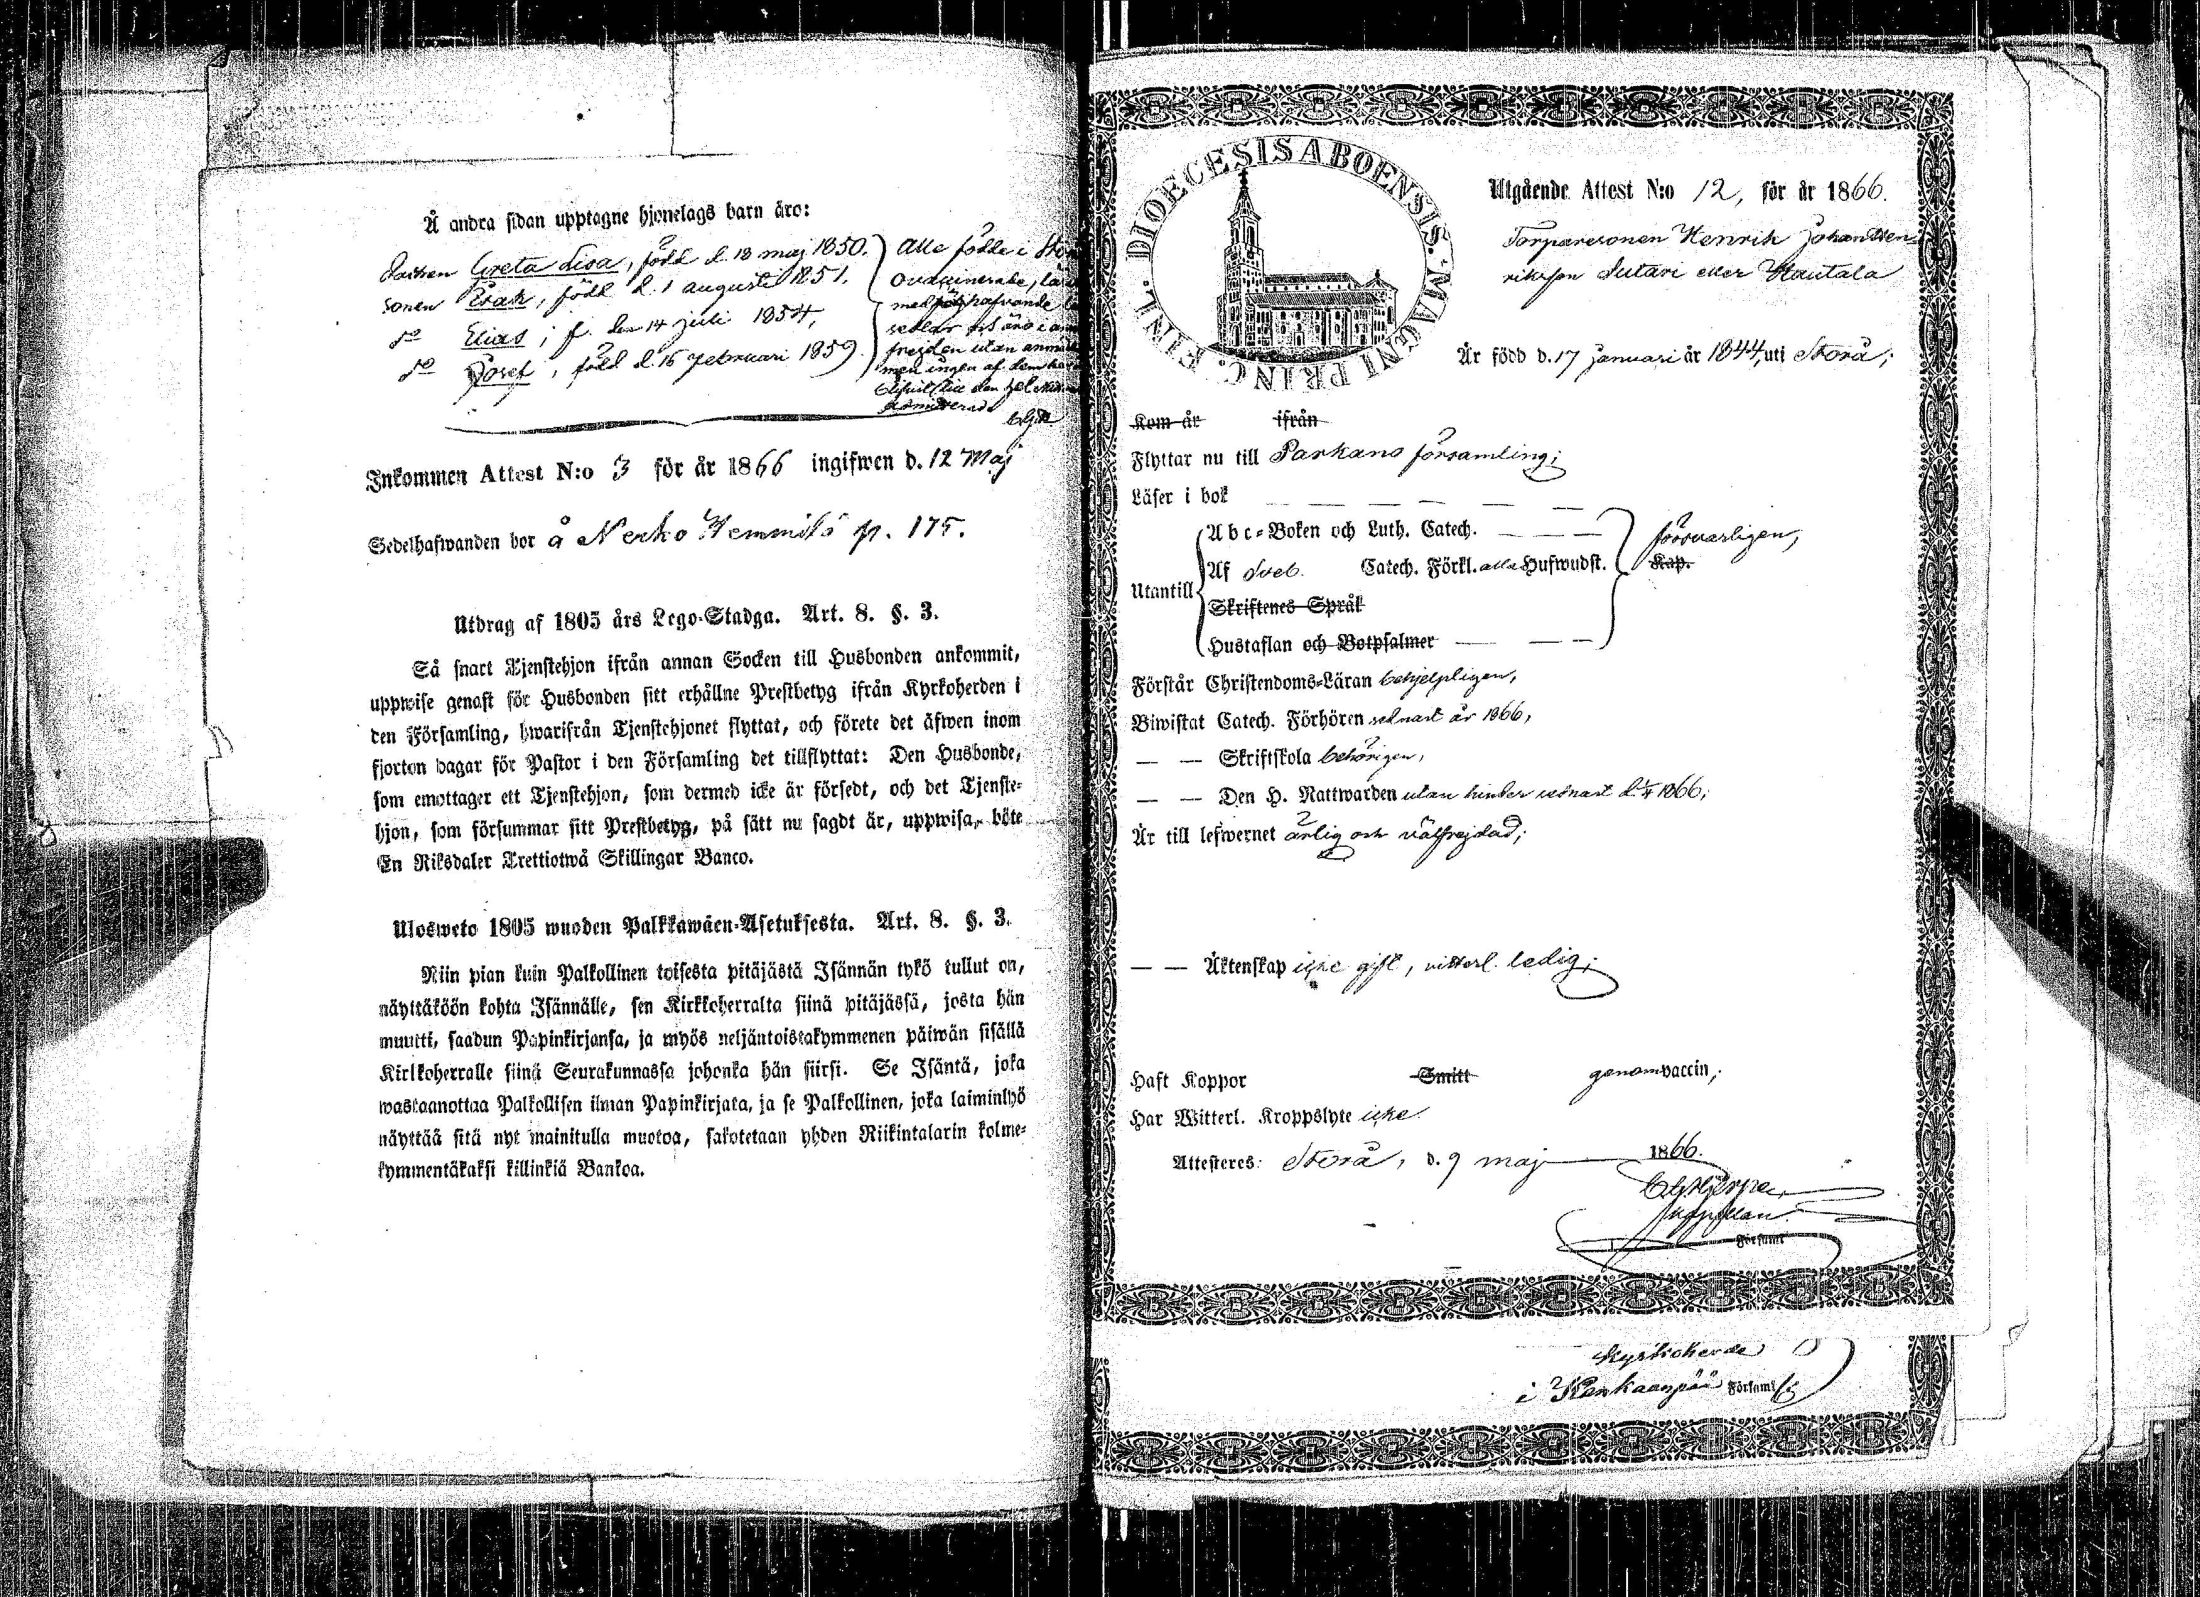 Å andra sidan upptagne hjonelags barn äro:
Greta Lisa, född d. 18 maj 1850. Alle födde i
sonen Esak, född d. 1 augusti 1851.
do Elias, f. den 14 juli 1854,
do Josef, född d. 15 februari 1859.
Inkommen Attest N:o 3 för år 1866 ingifwen d. 12 Maj
Sedelhafwanden bor å p. 175.
Utdrag af 1805 års Lego-Stadga. Art. 8. §. 3.
Så snart Tjenstehjon ifrån annan Socken till Husbonden ankommit,
uppwise genast för Husbonden sitt erhållne Prestbetyg ifrån Kyrkoherden i
den Församling, hwarifrån Tjenstehjonet flyttat, och förete det äfwen inom
fjorton dagar för Pastor i den Församling det tillflyttat: Den Husbonde,
som emottager ett Tjenstehjon, som dermed icke är försedt, och det Tjenste-
hjon, som försummar sitt Prestbetyg, på sätt nu sagdt är, uppwisa, böte
En Riksdaler Trettiotwå Skillingar Banco.
Ulosweto 1805 wuoden Palkkawäen-Asetuksesta. Art. 8. §. 3.
Niin pian kuin Palkollinen toisesta pitäjästä Isännän tykö tullut on,
näyttäköön kohta Isännälle, sen Kirkkoherralta siinä pitäjässä, josta hän
muutti, saadun Papinkirjansa, ja myös neljäntoistakymmenen päiwän sisällä
Kirkkoherralle siinä Seurakunnassa johonka hän siirsi. Se Isäntä, joka
wastaanottaa Palkollisen ilman Papinkirjata, ja se Palkollinen, joka laiminlyö
näyttää sitä nyt mainitulla muotoa, sakotetaan yhden Riikintalarin kolme-
kymmentäkaksi killinkiä Bankoa.
DIOECESIS ABOENSIS. MAGNI PRINC. FINL.
Utgående Attest N:o 12, för år 1866.
Torparesonen Henrik Johan Hen-
riksson Sutari eller Hautala
Är född d. 17 januari år 1844, uti Storå;
Kom år ifrån
Flyttar nu till Parkano församling;
Läser i bok
Utantill
Abc-Boken och Luth. Catech. försvarligen,
Af Sveb. Catech. Förkl. alla Hufwudst. Kap.
Skriftenes Språk
Hustaflan och Botpsalmer
Förstår Christendoms-Läran behjelpligen,
Biwistat Catech. Förhören senast år 1866,
— — Skriftskola behörigen,
— — Den H. Nattwarden utan hinder senast d. 1866;
Är till lefwernet ärlig och välfrejdad;
— — Äktenskap icke gift, vitterl. ledig;
Haft Koppor Smitt genom vaccin;
Har Witterl. Kroppslyte icke.
Attesteres: Storå, d. 9 maj 1866.
kapellan
Församl
Kyrkoherde
i Kankaanpää Församl